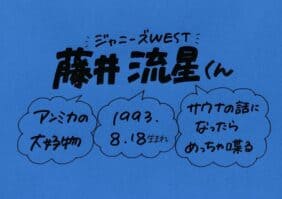 ジャニーズWEST
藤井 流星くん
アンミカの
大好物
1993.
8.18生まれ
サウナの話に
なったら
めっちゃ喋る